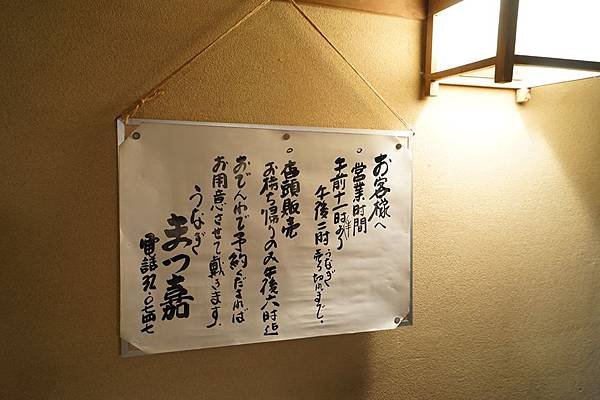 お客様へ
○ 営業時間
午前十一時半から
午後二時 うなぎ売り切れまで。
○ 店頭販売
お持ち帰りのみ午後六時迄
おでんわで予約くだされば
お用意させて戴きます。
うなぎ
まつ嘉
電話 九二・〇七四七